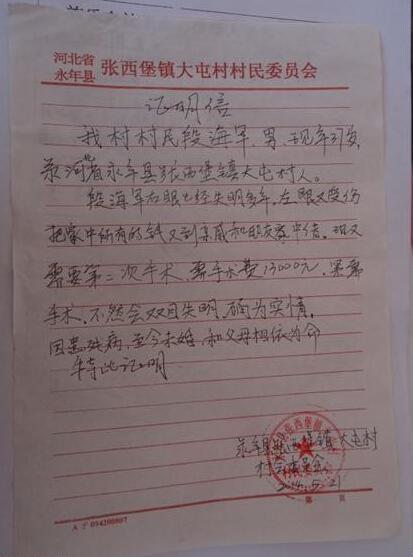 河北省
永年县 张西堡镇大屯村村民委员会
证明信
我村村民段海军，男，现年31岁，
系河北省永年县张西堡镇大屯村人。
段海军右眼已经失明多年，左眼又受伤
把家中所有的钱又到亲戚和朋友家中借，现又
需要第二次手术，需手术费13000元，
手术，不然会双目失明，确为实情。
因患残病，至今未婚，和父母相依为命
特此证明
永年县张西堡镇大屯村
村民委员会
5.21
第 页
A子094200807